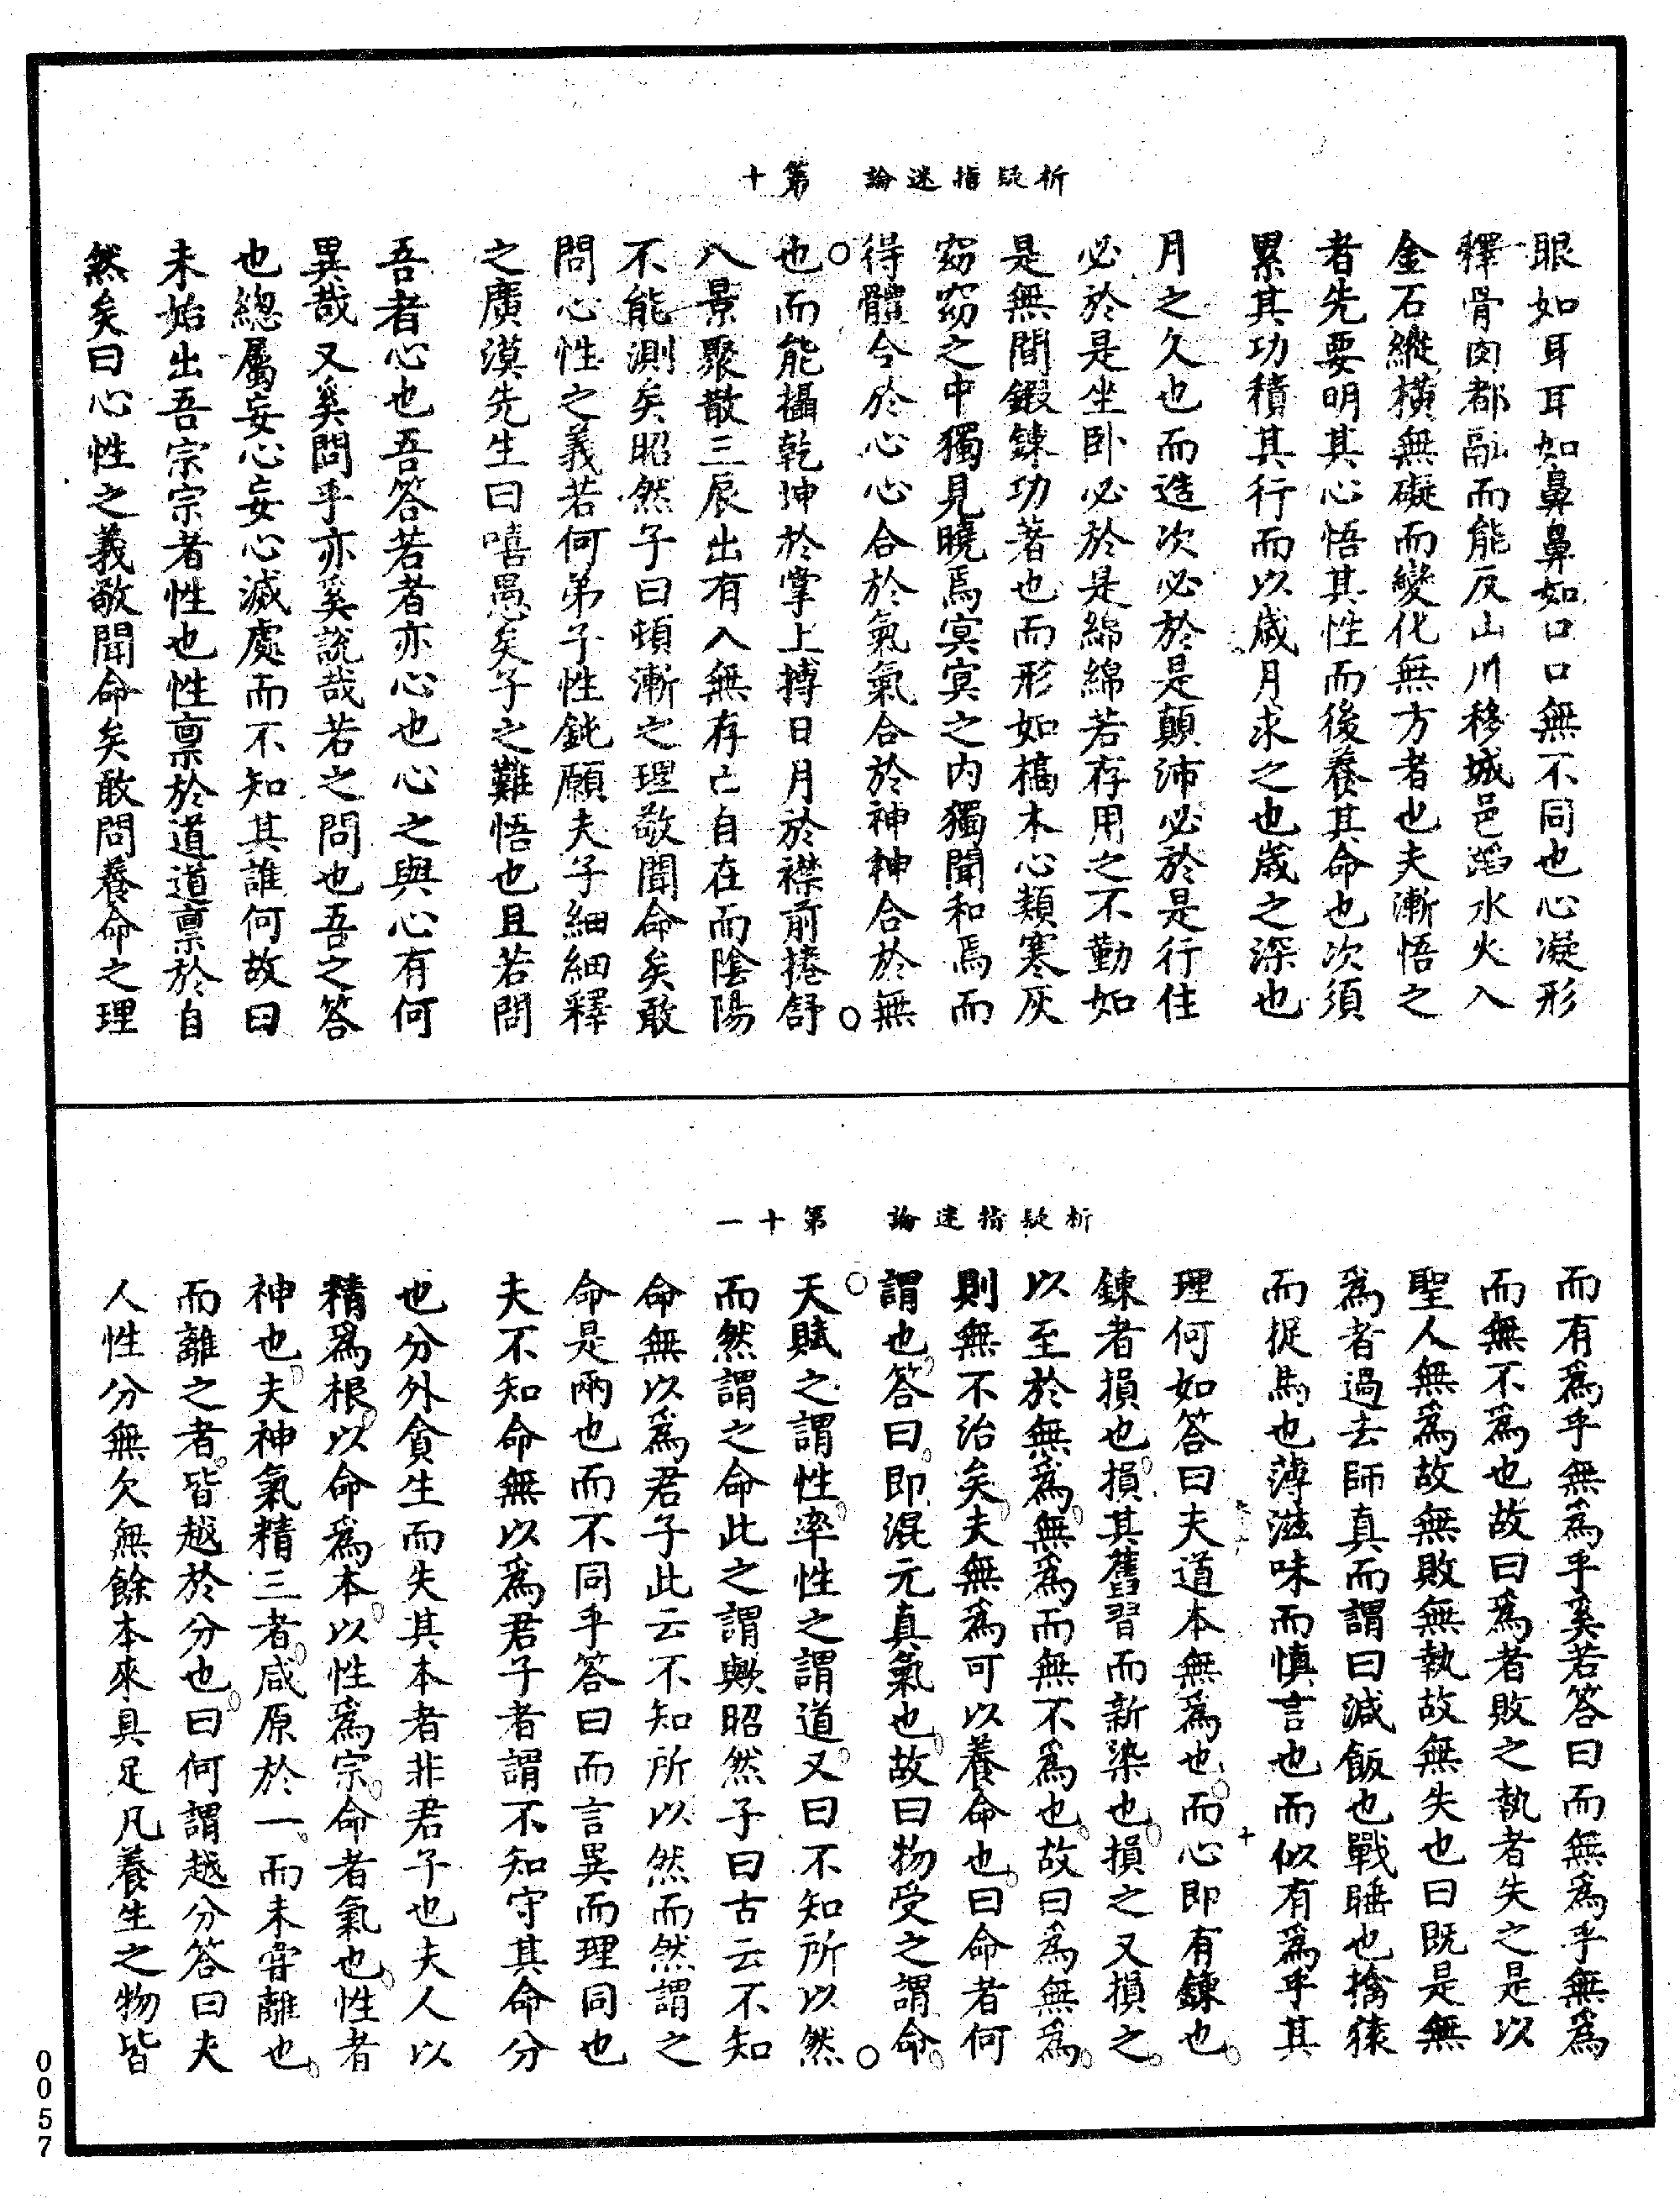 析疑指迷論　第十
眼如耳耳如鼻鼻如口口無不同也心凝形
釋骨肉都融而能反山川移城邑蹈水火入
金石縱橫無礙而變化無方者也夫漸悟之
者先要明其心悟其性而後養其命也次須
累其功積其行而以歲月求之也歲之深也
月之久也而造次必於是顛沛必於是行住
必於是坐卧必於是綿綿若存用之不勤如
是無間鍜鍊功著也而形如槁木心類寒灰
窈窈之中獨見曉焉冥冥之內獨聞和焉而
得體合於心心合於氣氣合於神神合於無
也而能攝乾坤於掌上搏日月於襟前捲舒
八景聚散三辰出有入無存亡自在而陰陽
不能測矣昭然子曰頓漸之理敬聞命矣敢
問心性之義若何弟子性鈍願夫子細細釋
之廣漠先生曰嘻愚矣子之難悟也且若問
吾者心也吾答若者亦心也心之與心有何
異哉又奚問乎亦奚說哉若之問也吾之答
也總屬妄心妄心滅處而不知其誰何故曰
未始出吾宗宗者性也性禀於道道禀於自
然矣曰心性之義敬聞命矣敢問養命之理
析疑指迷論　第十一
而有爲乎無爲乎奚若答曰而無爲乎無爲
而無不爲也故曰爲者敗之執者失之是以
聖人無爲故無敗無執故無失也曰既是無
爲者過去師真而謂曰減飯也戰睡也擒猿
而捉馬也薄滋味而慎言也而似有爲乎其
理何如答曰夫道本無爲也而心即有鍊也
鍊者損也損其舊習而新染也損之又損之
以至於無爲無爲而無不爲也故曰爲無爲
則無不治矣夫無爲可以養命也曰命者何
謂也答曰即混元真氣也故曰物受之謂命
天賦之謂性率性之謂道又曰不知所以然
而然謂之命此之謂歟昭然子曰古云不知
命無以爲君子此云不知所以然而然謂之
命是兩也而不同乎答曰而言異而理同也
夫不知命無以爲君子者謂不知守其命分
也分外貪生而失其本者非君子也夫人以
精爲根以命爲本以性爲宗命者氣也性者
神也夫神氣精三者咸原於一而未甞離也
而離之者皆越於分也曰何謂越分答曰夫
人性分無欠無餘本來具足凡養生之物皆
0057